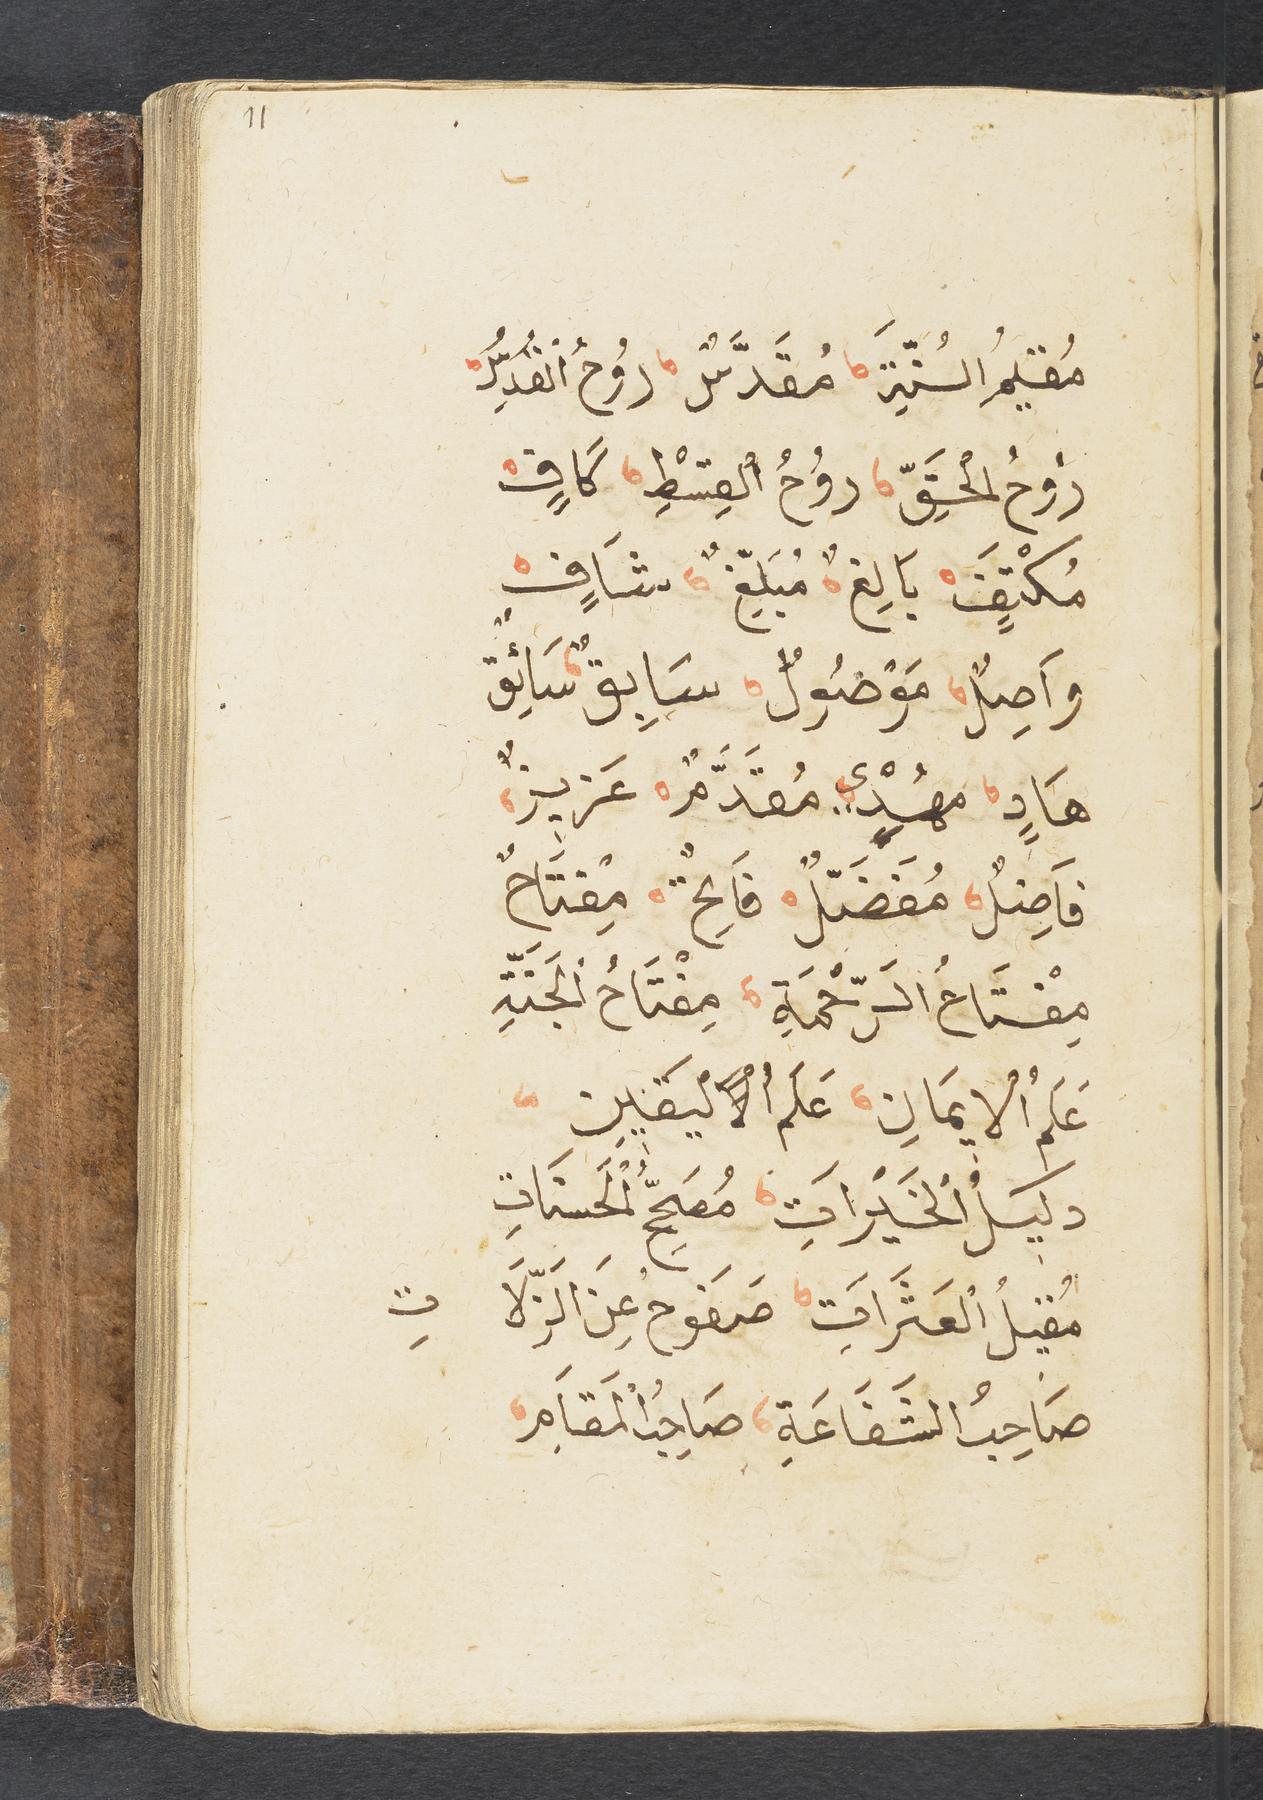 11
مُقِيمُ السُّنَّةِ مُقَدَّسٌ رُوحُ الْقُدُسِ
رُوحُ الْحَقِّ رُوحُ الْقِسْطِ كَافٍ
مُكْتَفٍ بَالِغٌ مُبَلِّغٌ شَافٍ
وَاصِلٌ مَوْصُولٌ سَابِقٌ سَائِقٌ
هَادٍ مُهْدٍى مُقَدَّمٌ عَزِيزٌ
فَاضِلٌ مُفَضَّلٌ فَاتِحٌ مِفْتَاحٌ
مِفْتَاحُ الرَّحْمَةِ مِفْتَاحُ الْجَنَّةِ
عَلَمُ الْاِيمَانِ عَلَمُ الْيَقِينِ
دَلِيلُ الْخَيْرَاتِ مُصَحِّحُ الْحَسَنَاتِ
مُقِيلُ الْعَثَرَاتِ صَفُوحٌ عَنِ الزَّلَّاتِ
صَاحِبُ الشَّفَاعَةِ صَاحِبُ الْمَقَامِ